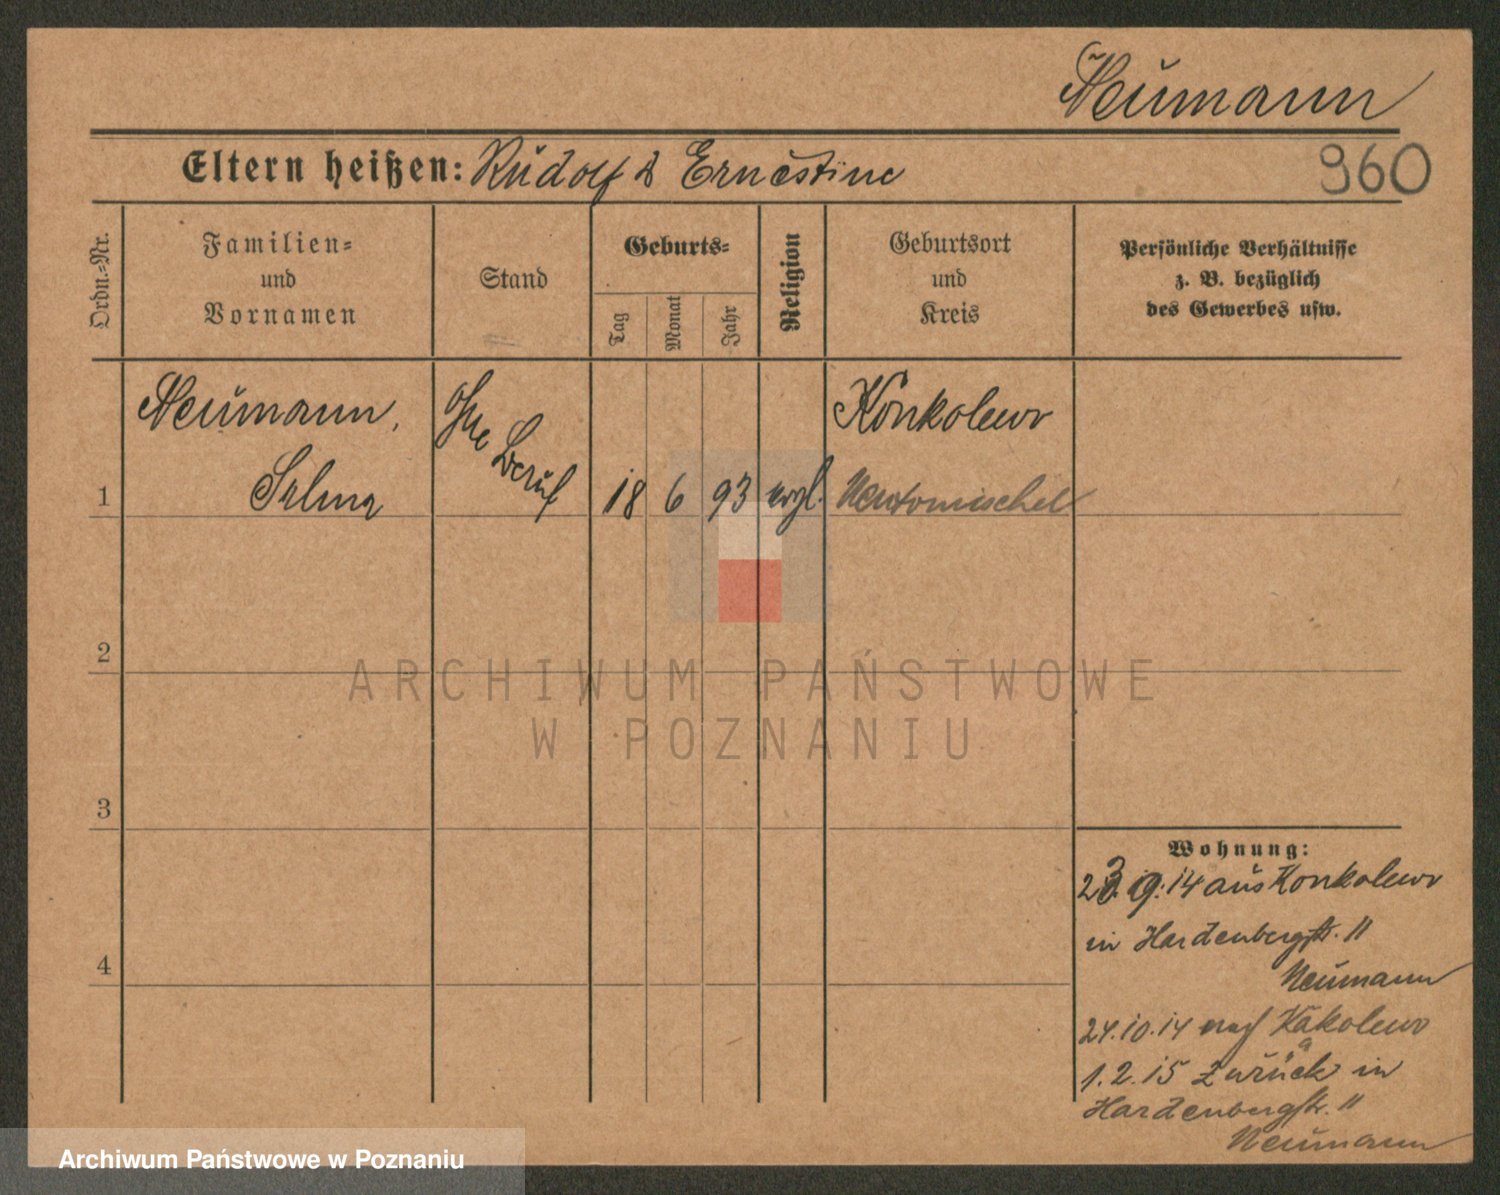 Neumann
Eltern heißen: Rudolf & Ernestine
960
Ordn.-Nr.
Familien-
und
Vornamen
Stand
Geburts-
Tag
Monat
Jahr
Religion
Geburtsort
und
Kreis
Persönliche Verhältnisse
z. B. bezüglich
des Gewerbes usw.
1
Neumann,
Selma
ohne Beruf
18
6
93
evgl.
Konkolewo
Neutomischel
2
3
4
Wohnung:
23. 9. 14 aus Konkolewo
in Hardenbergstr. 11
Neumann
24.10.14 nach Kakolewo
1.2.15 zurück in
Hardenbergstr. 11
Neumann
ARCHIWUM PAŃSTWOWE
W POZNANIU
Archiwum Państwowe w Poznaniu